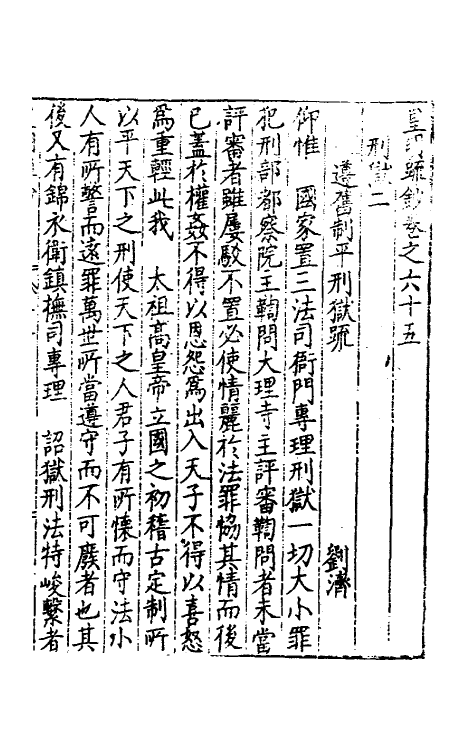 皇明疏鈔卷之六十五
刑獄二
遵舊制平刑獄疏　劉濟
仰惟　國家置三法司衙門專理刑獄一切大小罪
犯刑部都察院主鞫問大理寺主評審鞫問者未當
評審者雖屢駁不置必使情麗於法罪協其情而後
已蓋於權姦不得以恩怨爲出入天子不得以喜怒
爲重輕此我　太祖高皇帝立國之初稽古定制所
以平天下之刑使天下之人君子有所懷而守法小
人有所警而遠罪萬世所當遵守而不可廢者也其
後又有錦衣衛鎮撫司專理　詔獄刑法特峻繫者